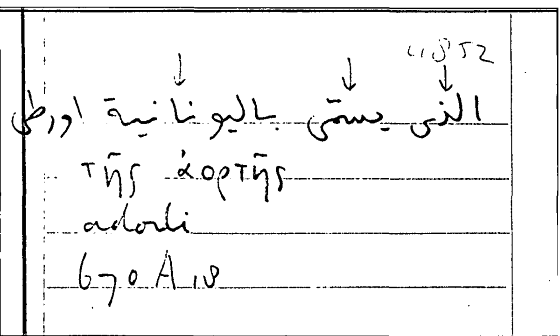 الذى يسمّى باليونانية اورطى
τῆς ἀορτῆς
adorti
670 A 18